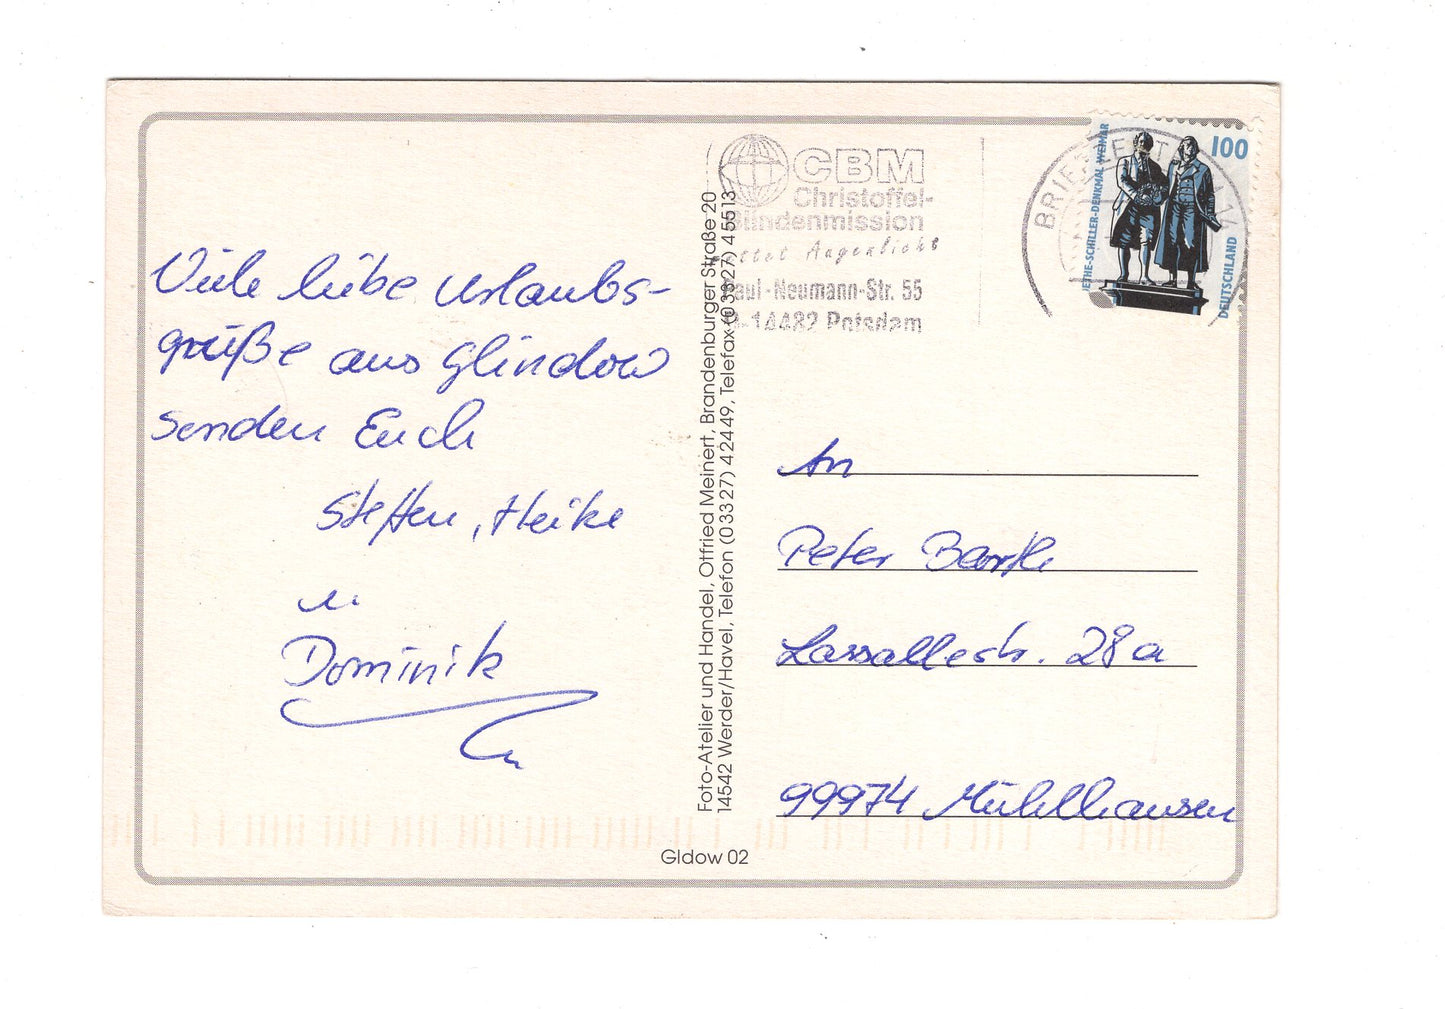 Viele liebe Urlaubs-
grüße aus Glindow
senden Euch
Steffen, Heike
u.
Dominik
Foto-Atelier und Handel, Otfried Meinert, Brandenburger Straße 20
14542 Werder/Havel, Telefon (03327) 42449, Telefax (03827) 45513
Gldow 02
CBM
Christoffel-
Blindenmission
rettet Augenlicht
Paul-Neumann-Str. 55
D-14482 Potsdam
BRIEFZENTRUM 14
100
GOETHE-SCHILLER-DENKMAL WEIMAR
DEUTSCHLAND
An
Peter Barth
Lassallestr. 28a
99974 Mühlhausen